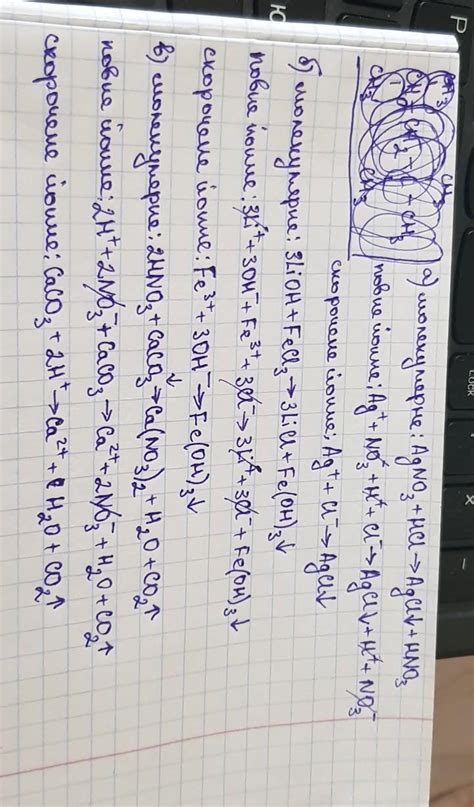 а) молекулярне: AgNO₃ + HCl → AgCl↓ + HNO₃
повне йонне: Ag⁺ + NO₃⁻ + H⁺ + Cl⁻ → AgCl↓ + H⁺ + NO₃⁻
скорочене йонне: Ag⁺ + Cl⁻ → AgCl↓
б) молекулярне: 3LiOH + FeCl₃ → 3LiCl + Fe(OH)₃↓
повне йонне: 3Li⁺ + 3OH⁻ + Fe³⁺ + 3Cl⁻ → 3Li⁺ + 3Cl⁻ + Fe(OH)₃↓
скорочене йонне: Fe³⁺ + 3OH⁻ → Fe(OH)₃↓
в) молекулярне: 2HNO₃ + CaCO₃↓ → Ca(NO₃)₂ + H₂O + CO₂↑
повне йонне: 2H⁺ + 2NO₃⁻ + CaCO₃ → Ca²⁺ + 2NO₃⁻ + H₂O + CO₂↑
скорочене йонне: CaCO₃ + 2H⁺ → Ca²⁺ + H₂O + CO₂↑